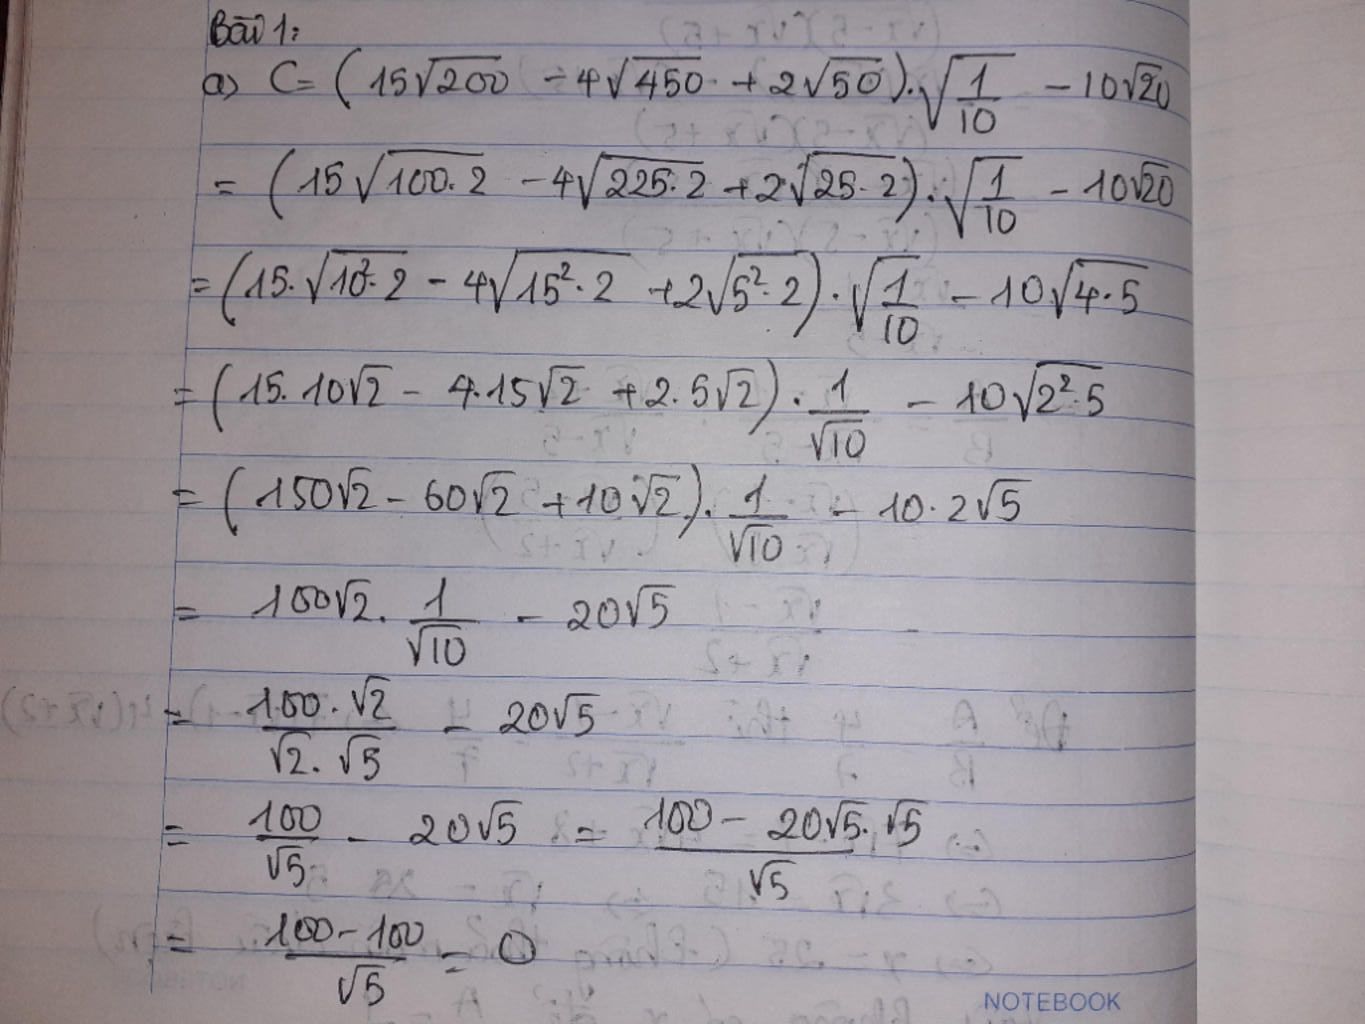 Bài 1:
a) C = (15√200 - 4√450 + 2√50).√(1/10) - 10√20
= (15√(100.2) - 4√(225.2) + 2√(25.2)).√(1/10) - 10√20
= (15.√(10².2) - 4√(15².2) + 2√(5².2)).√(1/10) - 10√(4.5)
= (15.10√2 - 4.15√2 + 2.5√2).1/√10 - 10√(2².5)
= (150√2 - 60√2 + 10√2).1/√10 - 10.2√5
= 100√2.1/√10 - 20√5
= (100.√2)/(√2.√5) - 20√5
= 100/√5 - 20√5 = (100 - 20√5.√5)/√5
= (100 - 100)/√5 = 0
NOTEBOOK